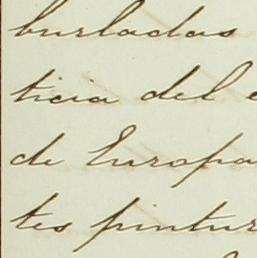 burladas
ticia del
de Europa
tes pintur